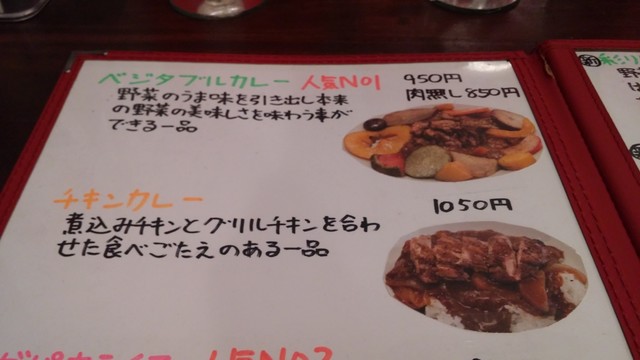 ベジタブルカレー 人気NO1 950円
肉無し850円
野菜のうま味を引き出し本来
の野菜の美味しさを味わう事が
できる一品
チキンカレー 1050円
煮込みチキンとグリルチキンを合わ
せた食べごたえのある一品
人気NO2
野